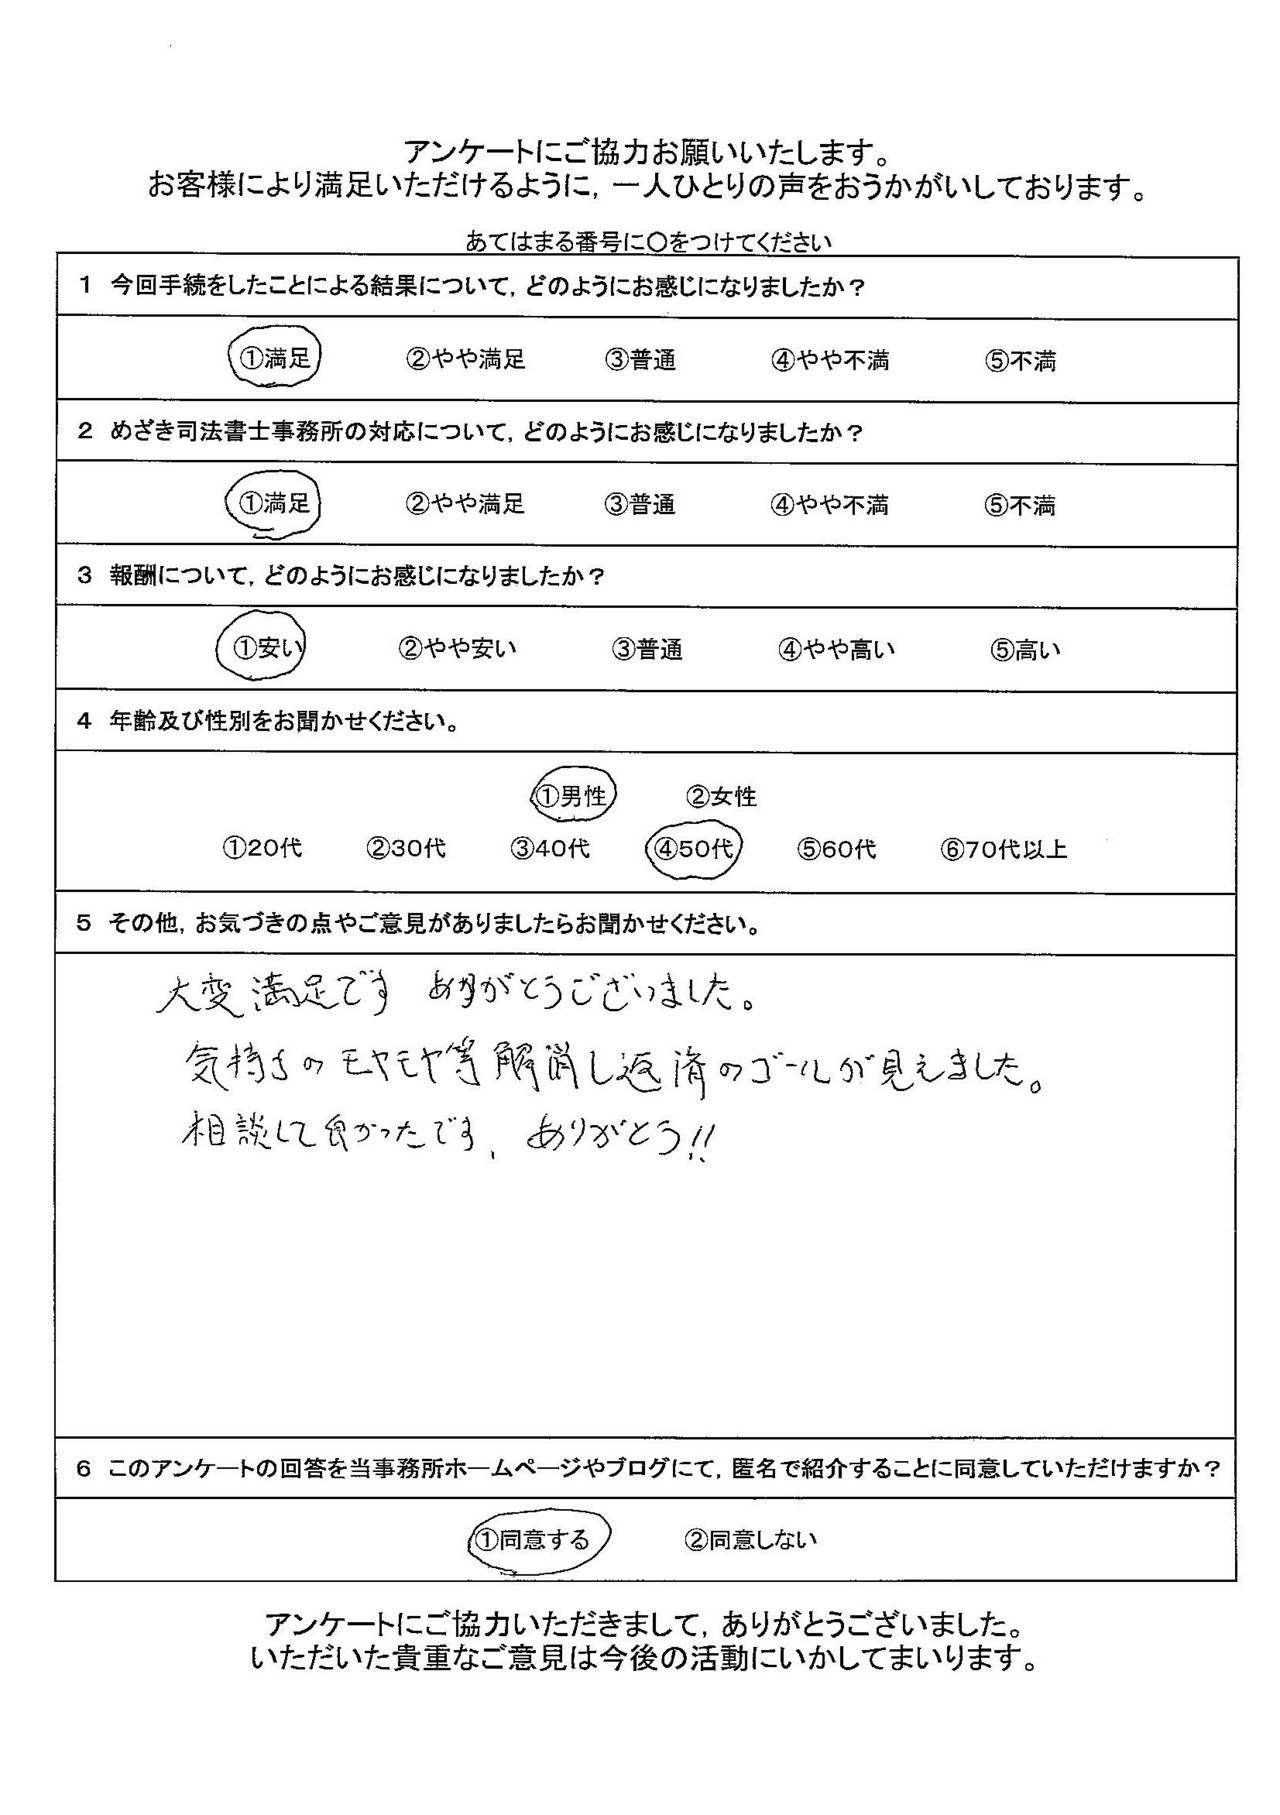 アンケートにご協力お願いいたします。
お客様により満足いただけるように，一人ひとりの声をおうかがいしております。
あてはまる番号に○をつけてください
1 今回手続をしたことによる結果について，どのようにお感じになりましたか？
①満足 ②やや満足 ③普通 ④やや不満 ⑤不満
2 めざき司法書士事務所の対応について，どのようにお感じになりましたか？
①満足 ②やや満足 ③普通 ④やや不満 ⑤不満
3 報酬について，どのようにお感じになりましたか？
①安い ②やや安い ③普通 ④やや高い ⑤高い
4 年齢及び性別をお聞かせください。
①男性 ②女性
①20代 ②30代 ③40代 ④50代 ⑤60代 ⑥70代以上
5 その他，お気づきの点やご意見がありましたらお聞かせください。
大変満足です ありがとうございました。
気持ちのモヤモヤ等解消し返済のゴールが見えました。
相談して良かったです、ありがとう!!
6 このアンケートの回答を当事務所ホームページやブログにて，匿名で紹介することに同意していただけますか？
①同意する ②同意しない
アンケートにご協力いただきまして，ありがとうございました。
いただいた貴重なご意見は今後の活動にいかしてまいります。